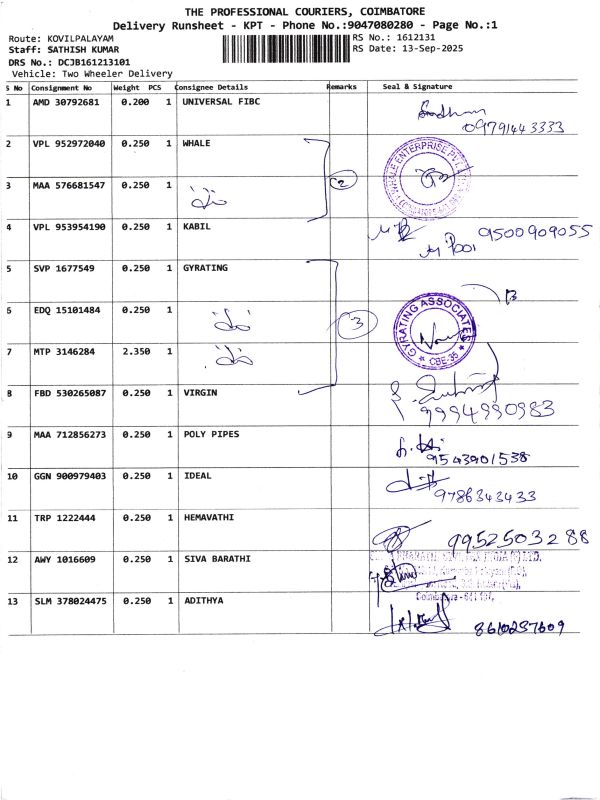 THE PROFESSIONAL COURIERS, COIMBATORE
Delivery Runsheet - KPT - Phone No.:9047080280 - Page No.:1
Route: KOVILPALAYAM
RS No.: 1612131
Staff: SATHISH KUMAR
RS Date: 13-Sep-2025
DRS No.: DCJB161213101
Vehicle: Two Wheeler Delivery
S No Consignment No Weight PCS Consignee Details Remarks Seal & Signature
1 AMD 30792681 0.200 1 UNIVERSAL FIBC
09791443333
2 VPL 952972040 0.250 1 WHALE
WHALE ENTERPRISE PVT.
3 MAA 576681547 0.250 1 2
4 VPL 953954190 0.250 1 KABIL 9500909055
5 SVP 1677549 0.250 1 GYRATING
6 EDQ 15101484 0.250 1 3
GYRATING ASSOCIATES
CBE-35
7 MTP 3146284 2.350 1
8 FBD 530265087 0.250 1 VIRGIN
9994990983
9 MAA 712856273 0.250 1 POLY PIPES
9543901538
10 GGN 900979403 0.250 1 IDEAL
9786343433
11 TRP 1222444 0.250 1 HEMAVATHI
9952503288
12 AWY 1016609 0.250 1 SIVA BARATHI
13 SLM 378024475 0.250 1 ADITHYA
8610237609